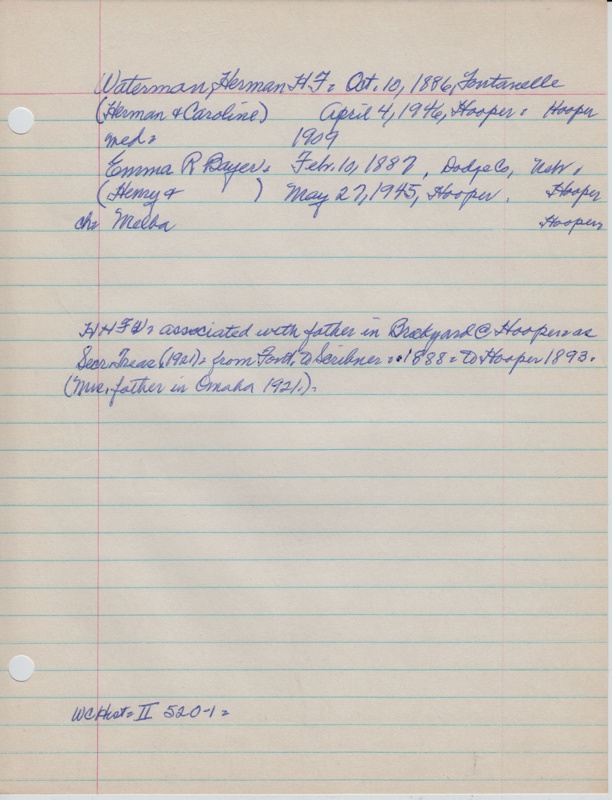 Waterman, Herman H F = Oct. 10, 1886, Fontanelle
(Herman & Caroline) April 4, 1946, Hooper = Hooper
med = 1909
Emma R Bayer = Feb. 10, 1887, Dodge Co, Nebr.
(Henry & ) May 27, 1945, Hooper. Hooper
ch = Melba Hooper
H H F W = associated with father in Brickyard @ Hooper = as
Secr. Treas (1921) = from Font. to Scribner = 1888 = to Hooper 1893.
(Mrs. father in Omaha 1921.) =
WC Hist = II 520-1 =